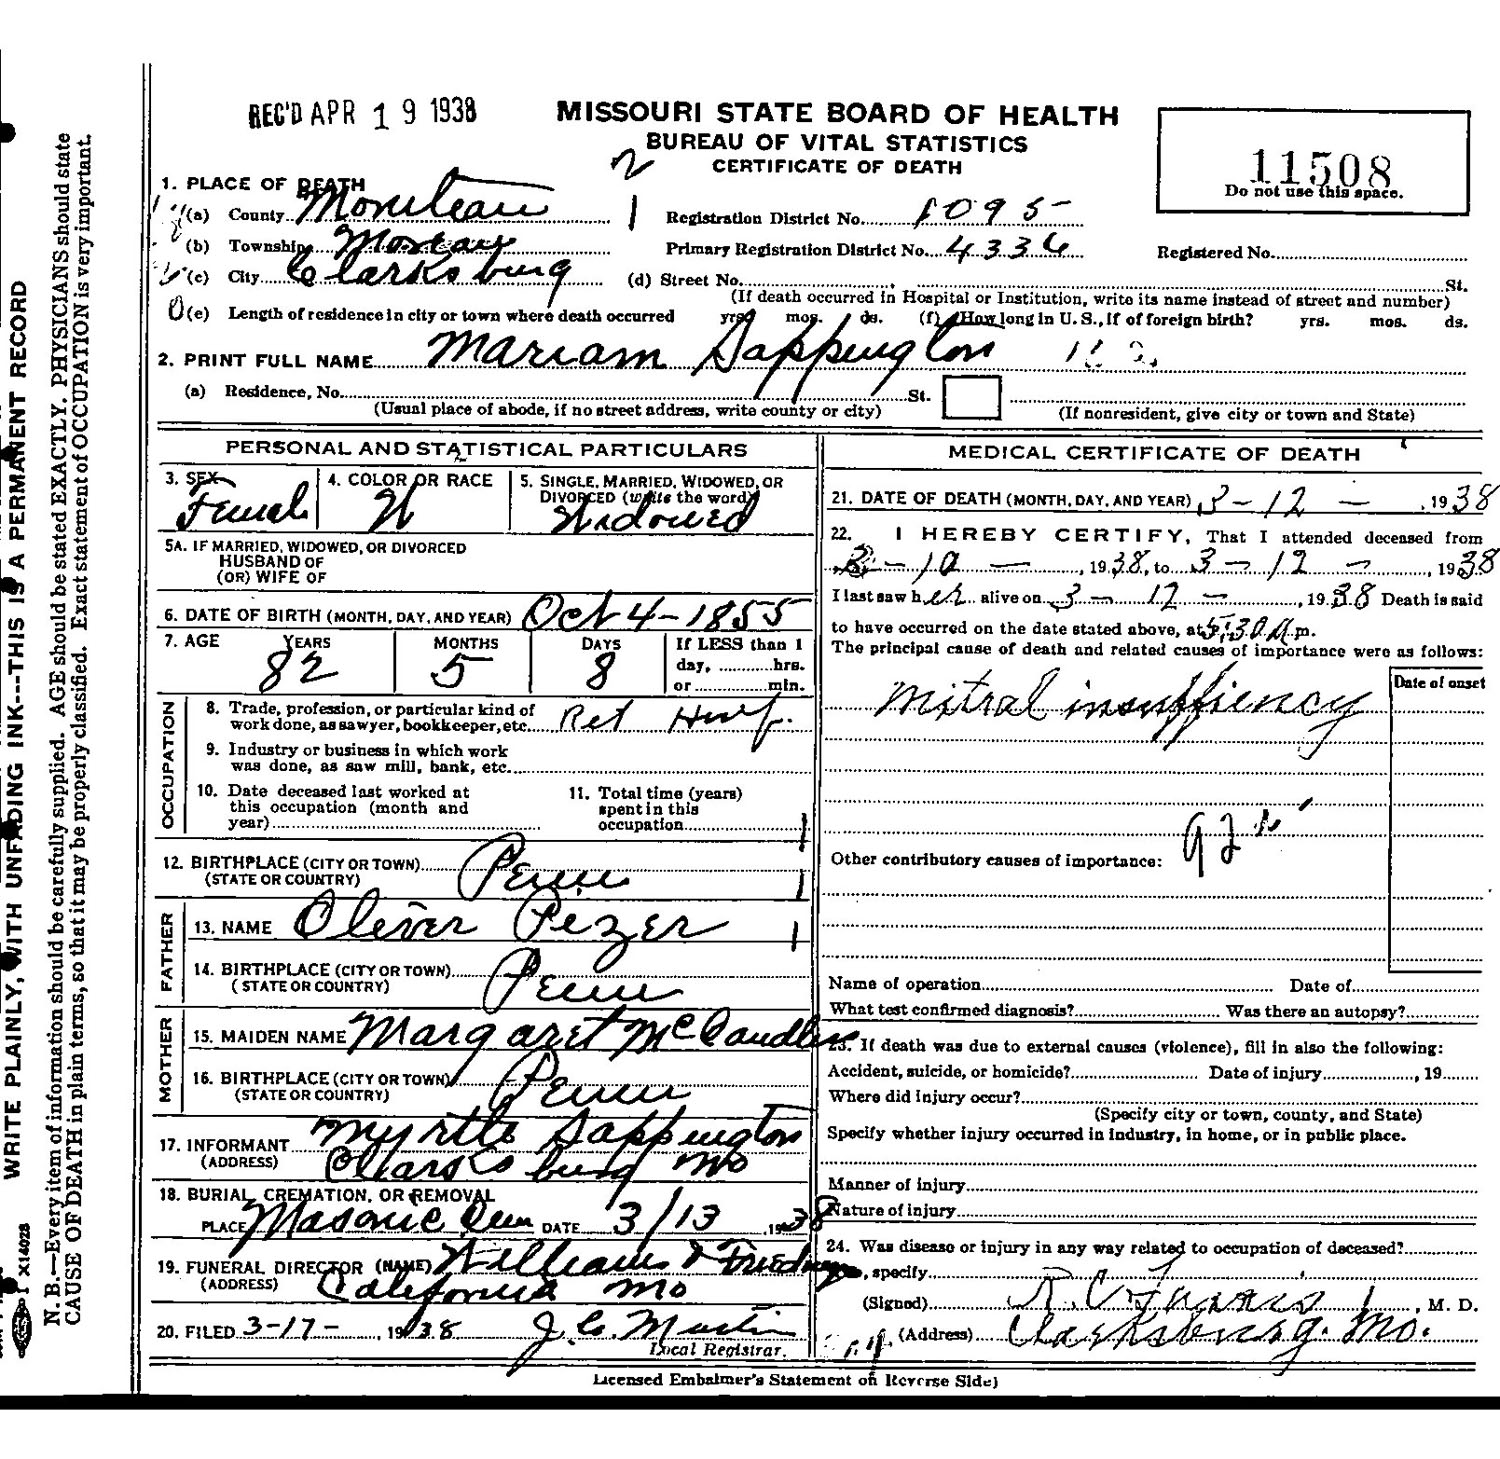 REC'D APR 19 1938
MISSOURI STATE BOARD OF HEALTH
BUREAU OF VITAL STATISTICS
CERTIFICATE OF DEATH
11508
Do not use this space.
2
1. PLACE OF DEATH
(a) County Moniteau 1
Registration District No. 1095
(b) Township Moreau
Primary Registration District No. 4336
Registered No.
(c) City Clarksburg (d) Street No. St.
(If death occurred in Hospital or Institution, write its name instead of street and number)
(e) Length of residence in city or town where death occurred yrs. mos. ds. (f) How long in U. S., if of foreign birth? yrs. mos. ds.
2. PRINT FULL NAME Mariam Sappington
(a) Residence, No. St.
(Usual place of abode, if no street address, write county or city) (If nonresident, give city or town and State)
PERSONAL AND STATISTICAL PARTICULARS
3. SEX Female
4. COLOR OR RACE W
5. SINGLE, MARRIED, WIDOWED, OR DIVORCED (write the word) Widowed
5A. IF MARRIED, WIDOWED, OR DIVORCED
HUSBAND OF
(OR) WIFE OF
6. DATE OF BIRTH (MONTH, DAY, AND YEAR) Oct 4-1855
7. AGE YEARS 82 MONTHS 5 DAYS 8
If LESS than 1
day, hrs.
or min.
OCCUPATION
8. Trade, profession, or particular kind of
work done, as sawyer, bookkeeper, etc. Ret
9. Industry or business in which work
was done, as saw mill, bank, etc.
10. Date deceased last worked at
this occupation (month and
year)
11. Total time (years)
spent in this
occupation
12. BIRTHPLACE (CITY OR TOWN)
(STATE OR COUNTRY) Penn
FATHER
13. NAME Oliver Pezer
14. BIRTHPLACE (CITY OR TOWN)
(STATE OR COUNTRY) Penn
MOTHER
15. MAIDEN NAME Margaret McCandless
16. BIRTHPLACE (CITY OR TOWN)
(STATE OR COUNTRY) Penn
17. INFORMANT Myrtle Sappington
(ADDRESS) Clarksburg Mo
18. BURIAL, CREMATION, OR REMOVAL
PLACE Masonic Cem DATE 3/13 1938
19. FUNERAL DIRECTOR (NAME) Williams &
(ADDRESS) California Mo
20. FILED 3-17-, 1938 J. C. Martin
Local Registrar.
MEDICAL CERTIFICATE OF DEATH
21. DATE OF DEATH (MONTH, DAY, AND YEAR) 3-12-, 1938
22. I HEREBY CERTIFY, That I attended deceased from
3-10-, 1938, to 3-12-, 1938
I last saw her alive on 3-12-, 1938 Death is said
to have occurred on the date stated above, at 5:30 A.m.
The principal cause of death and related causes of importance were as follows:
Date of onset
Mitral insuffiency
92
Other contributory causes of importance:
Name of operation Date of
What test confirmed diagnosis? Was there an autopsy?
23. If death was due to external causes (violence), fill in also the following:
Accident, suicide, or homicide? Date of injury , 19
Where did injury occur?
(Specify city or town, county, and State)
Specify whether injury occurred in industry, in home, or in public place.
Manner of injury
Nature of injury
24. Was disease or injury in any way related to occupation of deceased?
, specify
(Signed) R. C. , M. D.
(Address) Clarksburg. Mo.
Licensed Embalmer's Statement on Reverse Side)
WRITE PLAINLY, WITH UNFADING INK---THIS IS A PERMANENT RECORD
N. B.—Every item of information should be carefully supplied. AGE should be stated EXACTLY. PHYSICIANS should state
CAUSE OF DEATH in plain terms, so that it may be properly classified. Exact statement of OCCUPATION is very important.
X14028